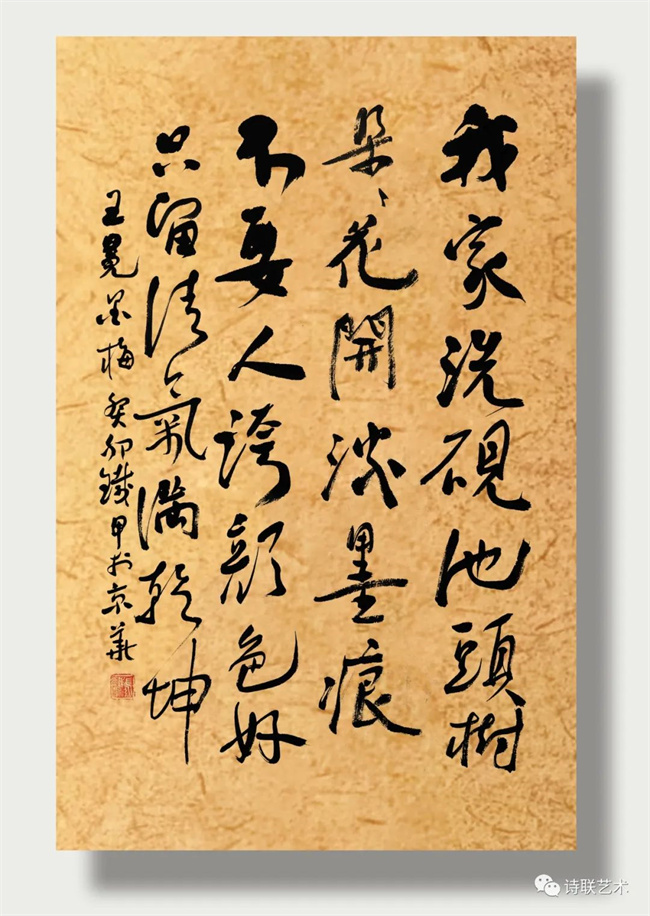 我家洗硯池頭樹
朵、花開淡墨痕
不要人誇顏色好
只留清氣滿乾坤
王冕墨梅 癸卯鐵甲於京華
诗联艺术